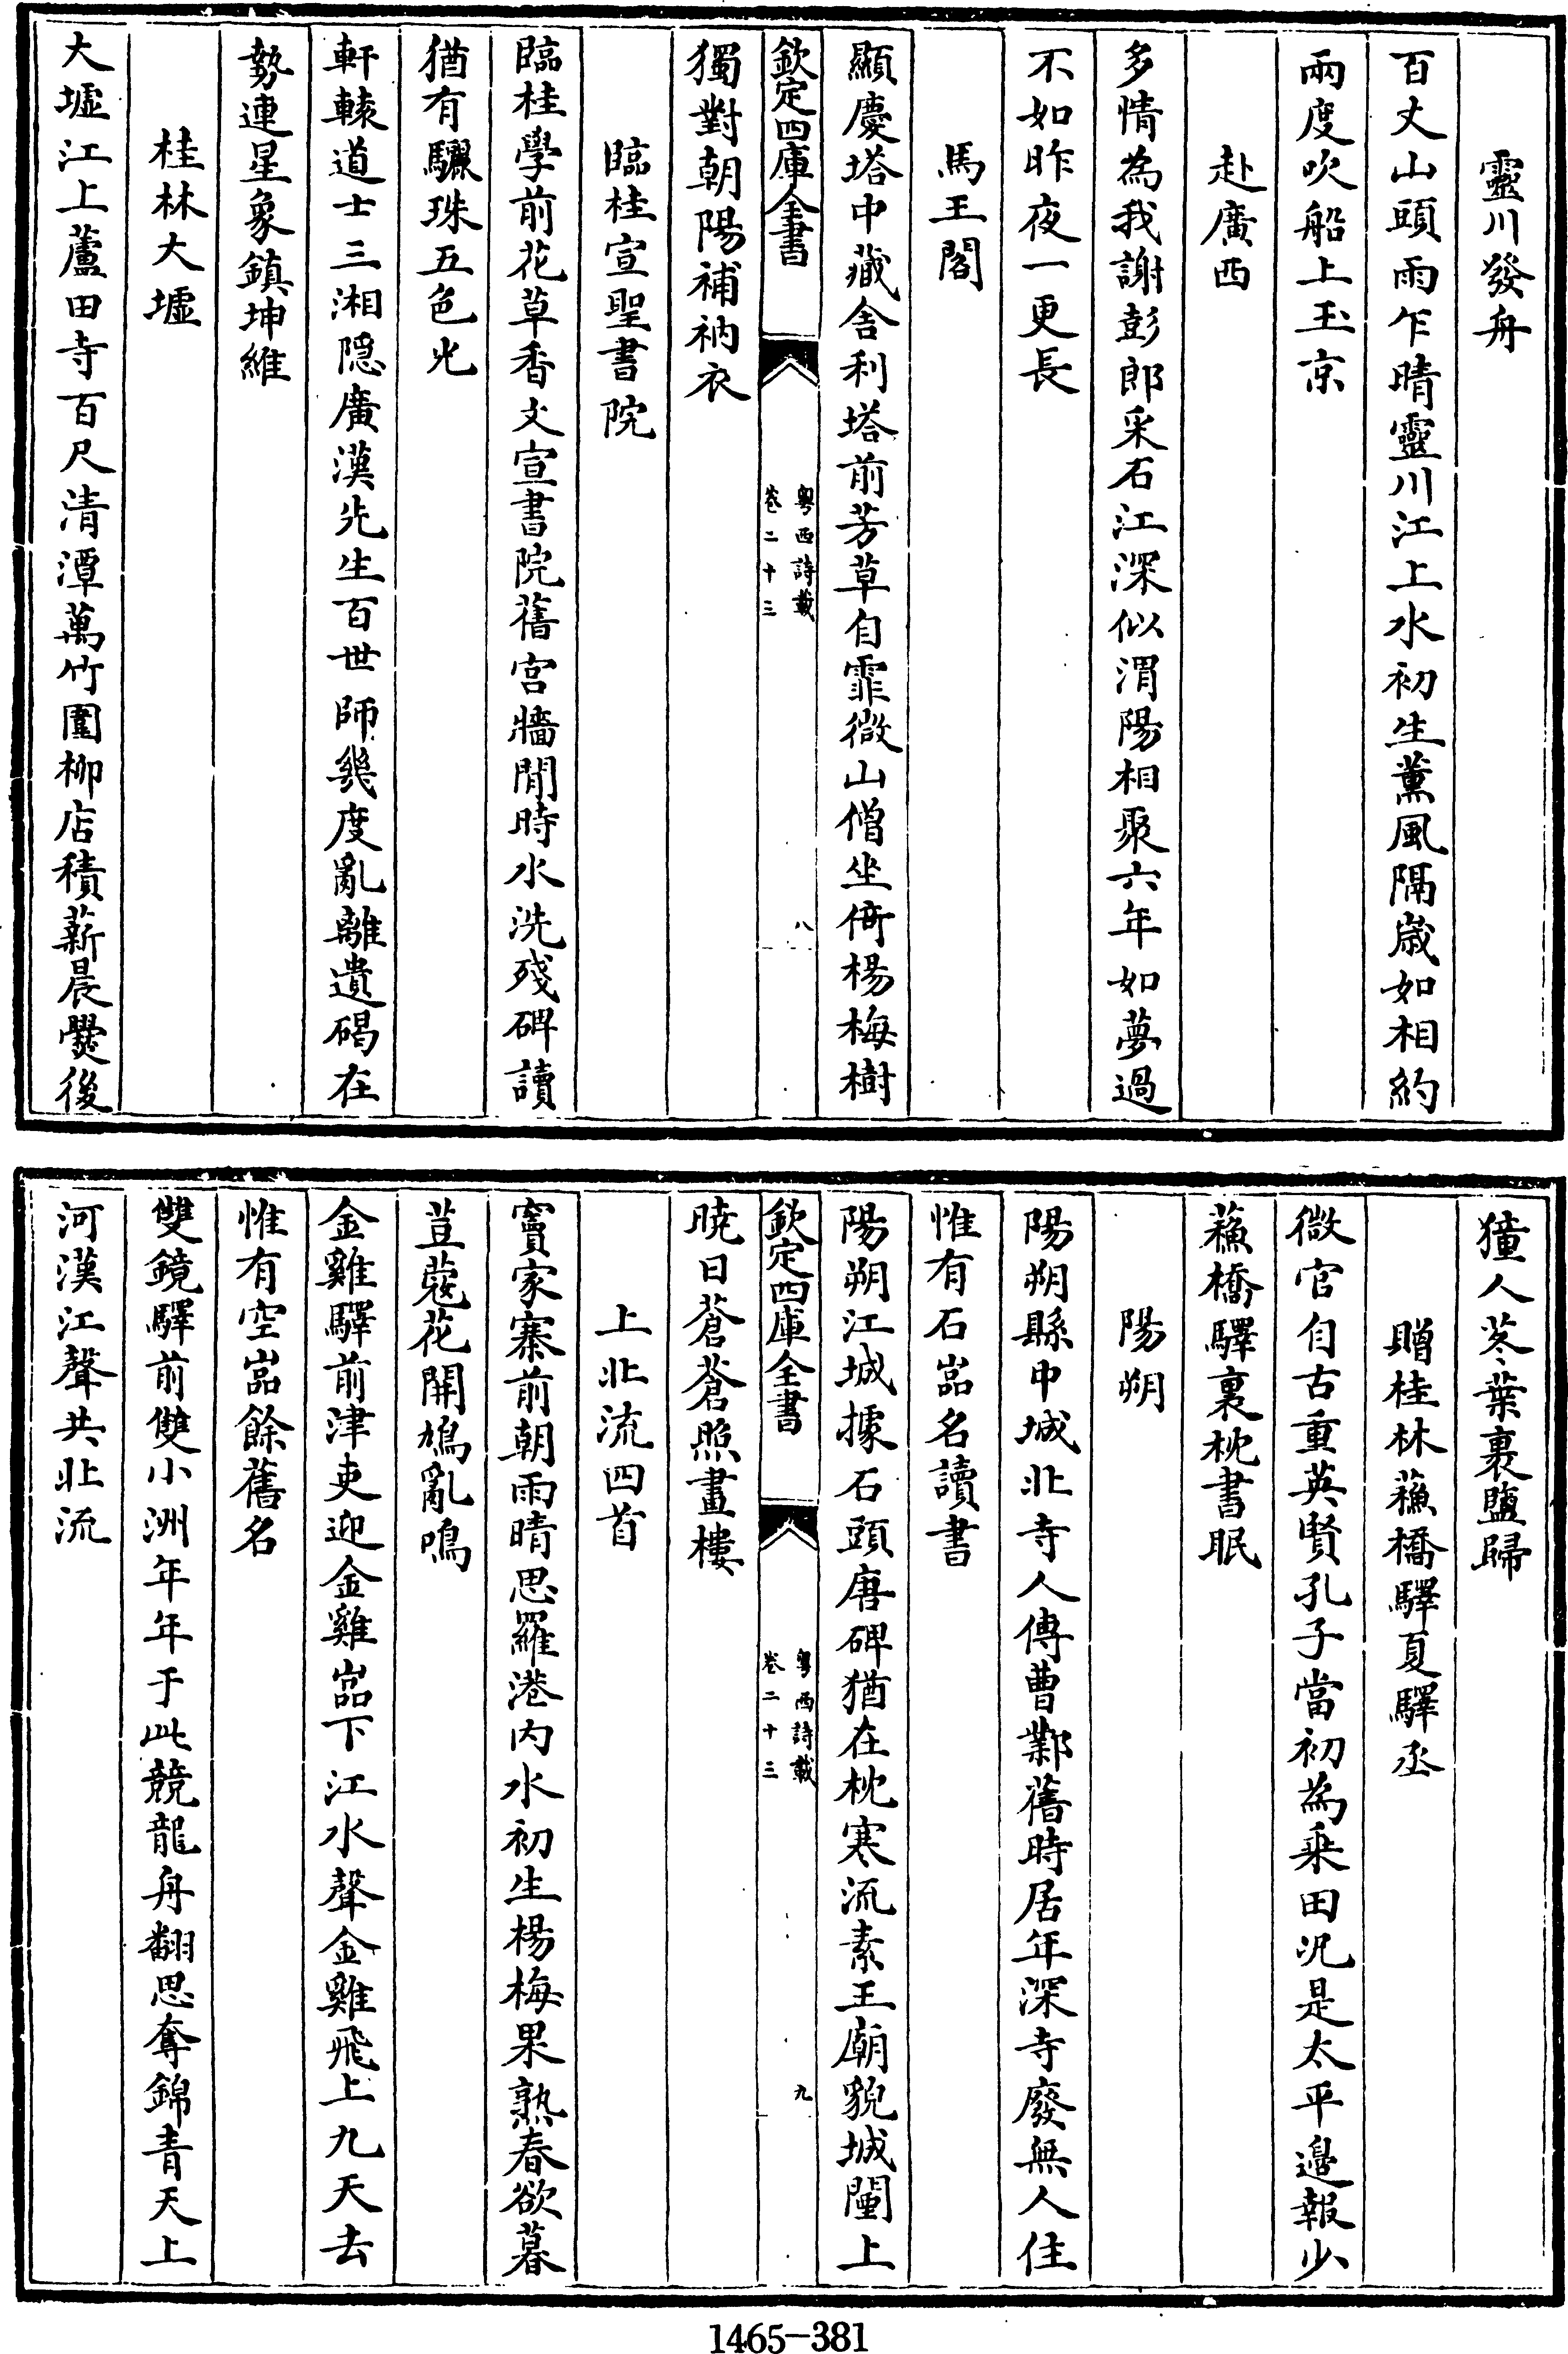 靈川發舟
百丈山頭雨乍晴靈川江上水初生薰風隔歳如相約
兩度吹船上玉京
赴廣西
多情為我謝彭郎采石江深似渭陽相聚六年如夢過
不如昨夜一更長
馬王閣
顯慶塔中藏舍利塔前芳草自霏微山僧坐倚楊梅樹
欽定四庫全書
粤西詩載
卷二十三
八
獨對朝陽補衲衣
臨桂宣聖書院
臨桂學前花草香文宣書院舊宫牆閒時水洗殘碑讀
猶有驪珠五色光
軒轅道士三湘隠廣漢先生百世師幾度亂離遺碣在
勢連星象鎮坤維
桂林大墟
大墟江上蘆田寺百尺清潭萬竹圍栁店積薪晨㸑後
獞人苳葉裹鹽歸
贈桂林蘓橋驛夏驛丞
微官自古重英賢孔子當初為乘田况是太平邉報少
蘓橋驛裏枕書眠
陽朔
陽朔縣中城北寺人傳曹鄴舊時居年深寺廢無人住
惟有石嵓名讀書
陽朔江城據石頭唐碑猶在枕寒流素王廟貌城闉上
欽定四庫全書
粤西詩載
卷二十三
九
曉日蒼蒼照畫樓
上北流四首
竇家寨前朝雨晴思羅港内水初生楊梅果熟春欲暮
荳蔻花開鳩亂鳴
金雞驛前津吏迎金雞嵓下江水聲金雞飛上九天去
惟有空嵓餘舊名
雙鏡驛前雙小洲年年于此競龍舟翻思奪錦青天上
河漢江聲共北流
1465-381